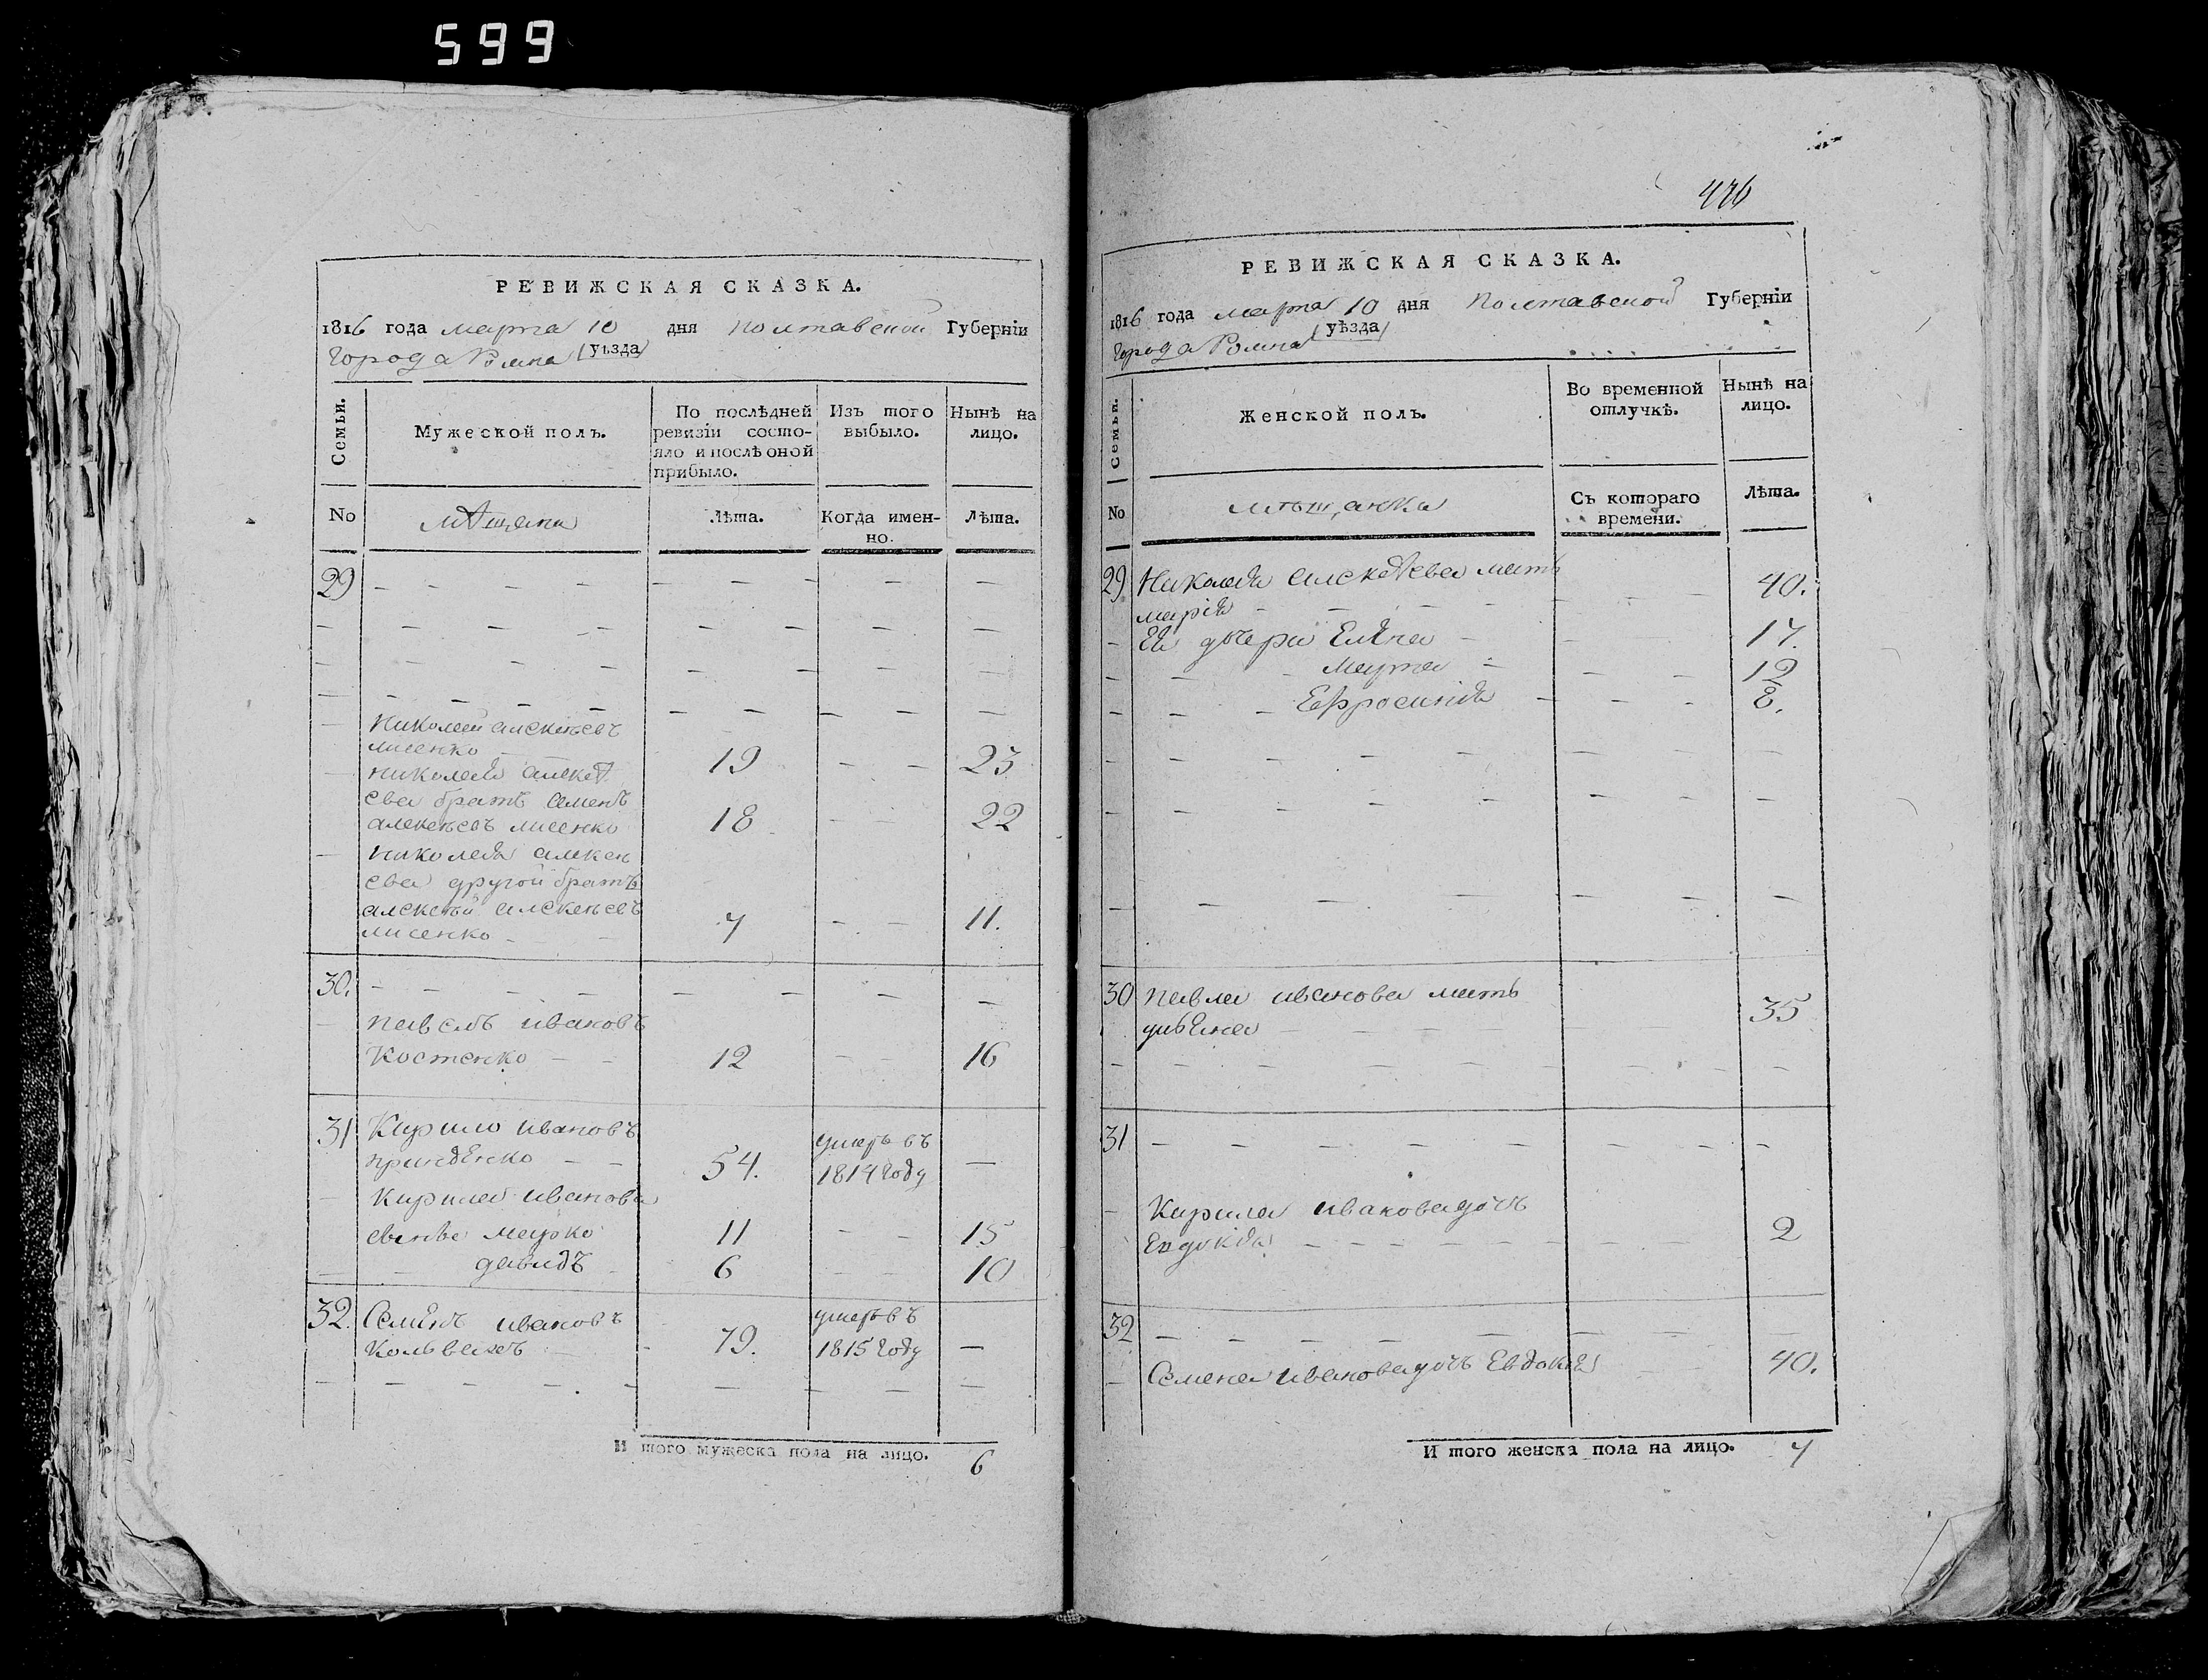 599
РЕВИЖСКАЯ СКАЗКА.
1816 года марта 10 дня Полтавской Губерніи
Города Ромна (уѣзда)
Семьи. Мужеской полъ. По послѣдней ревизіи состояло и послѣ оной прибыло. Изъ того выбыло. Нынѣ на лицо.
No мѣщане Лѣта. Когда именно. Лѣта.
29 - - - - - - - -
- - - - - - - -
- - - - - - - -
- - - - - - - -
Николай алексѣевъ
лисенко 19 - - 23
Николая алексѣ
ева братъ семенъ
алексѣевъ лисенко 18 - - 22
- Николая алексѣ
ева другой братъ
алексѣй алексѣевъ
лисенко - 7 - - 11.
30. - - - - - - - -
- павелъ ивановъ
Костенко - - 12 - - 16
31 Кирило ивановъ умеръ въ
- - 54. 1814 году —
- Кирила иванова
сыновья марко 11 - - 15
- - давидъ 6 - - 10
32. Семенъ ивановъ умеръ въ
- 79. 1815 году —
- - - - - - - -
И того мужеска пола на лицо. 6
476
РЕВИЖСКАЯ СКАЗКА.
1816 года марта 10 дня Полтавской Губерніи
Города Ромна (уѣзда)
Семьи. Женской полъ. Во временной отлучкѣ. Нынѣ на лицо.
No мѣщанки Съ котораго времени. Лѣта.
29 Николая алексѣева мать
марія - - - - - - 40.
- Ея дочери Елена - - 17.
- - - марта - - - 12
- - - Ефросинія - - - 8.
- - - - - - - -
- - - - - - - -
- - - - - - - -
30 павла иванова мать
- - - - 35
- - - - - - - -
31 - - - - - - - -
- Кирила иванова дочь
Евдокія - - - - - - 2
32 - - - - - - - -
- Семена иванова дочь Евдокія - - 40.
И того женска пола на лицо. 7